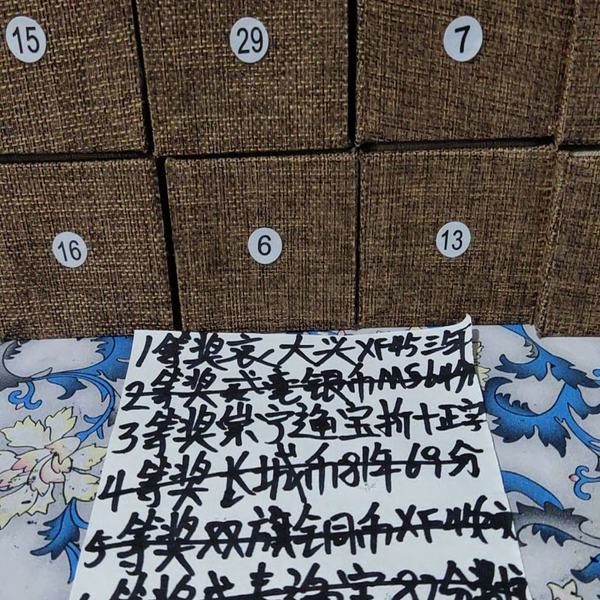 15 29 7
16 6 13
1等奖袁大头XF45三年
2等奖贰毫银币MS64分
3等奖崇宁通宝折十正字
4等奖长城币81年69分
5等奖双旗铜币XF45
等奖 通宝82分